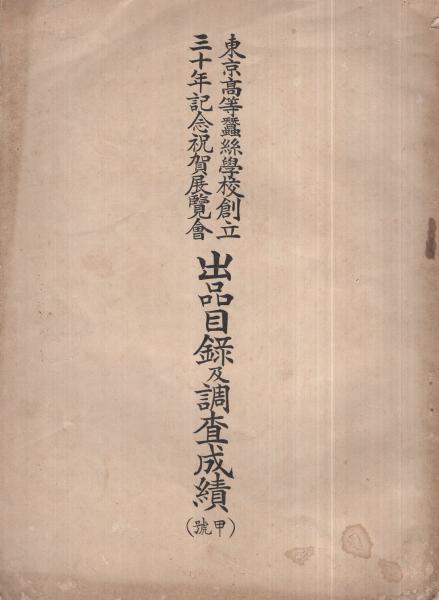 東京高等蠶絲學校創立
三十年記念祝賀展覽會
出品目錄及調査成績
(甲號)